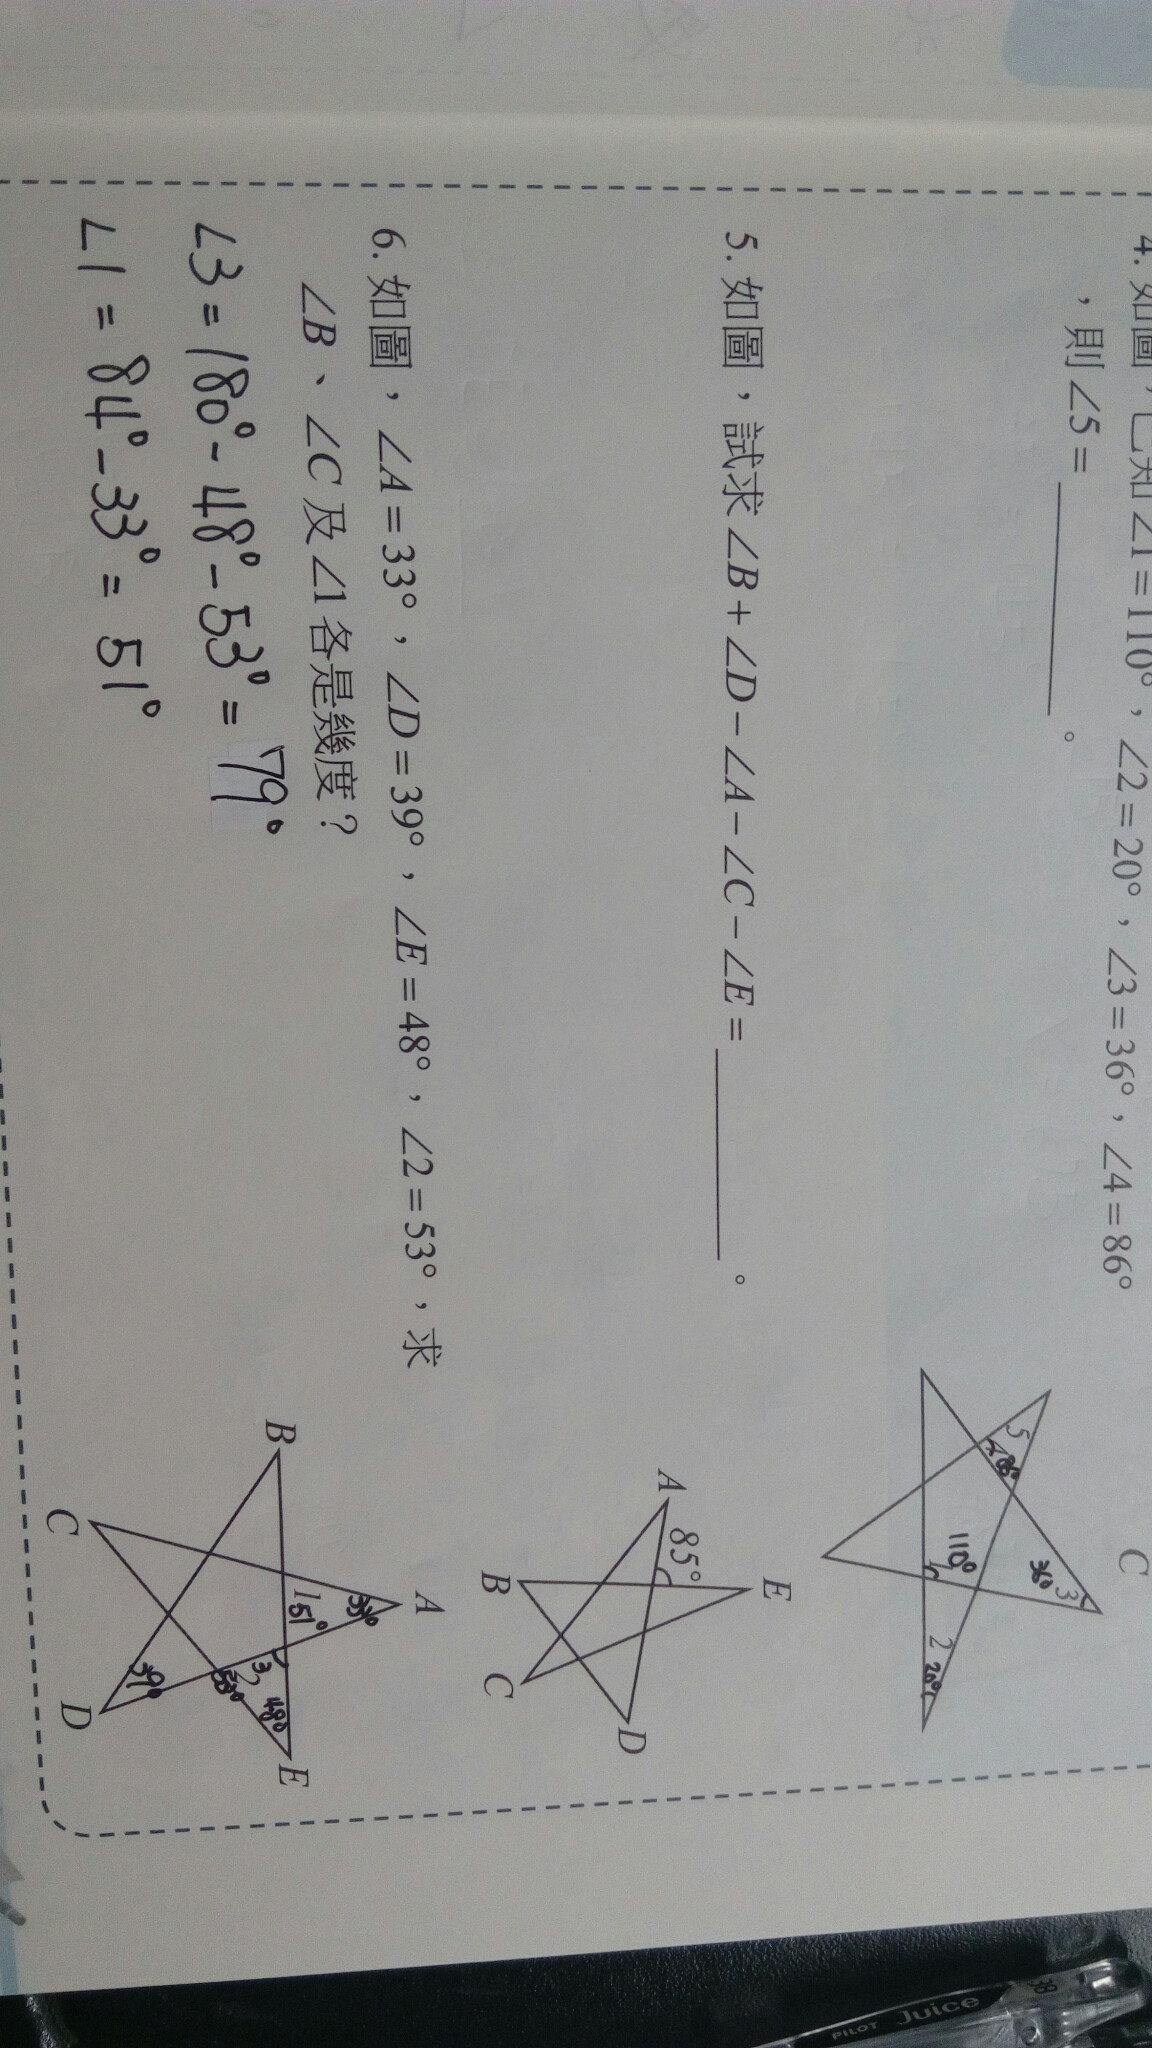 4. 如圖，已知∠1=110°，∠2=20°，∠3=36°，∠4=86°
，則∠5=＿＿＿＿＿。
C
5
4 86°
110°
1
36°
3
2
20°
5. 如圖，試求∠B+∠D-∠A-∠C-∠E=＿＿＿＿＿。
A
85°
E
B
C
D
6. 如圖，∠A=33°，∠D=39°，∠E=48°，∠2=53°，求
∠B、∠C及∠1各是幾度？
∠3=180°-48°-53°=79°
∠1=84°-33°=51°
A
33°
B
1
51°
3
48°
E
2
53°
C
39°
D
PILOT Juice